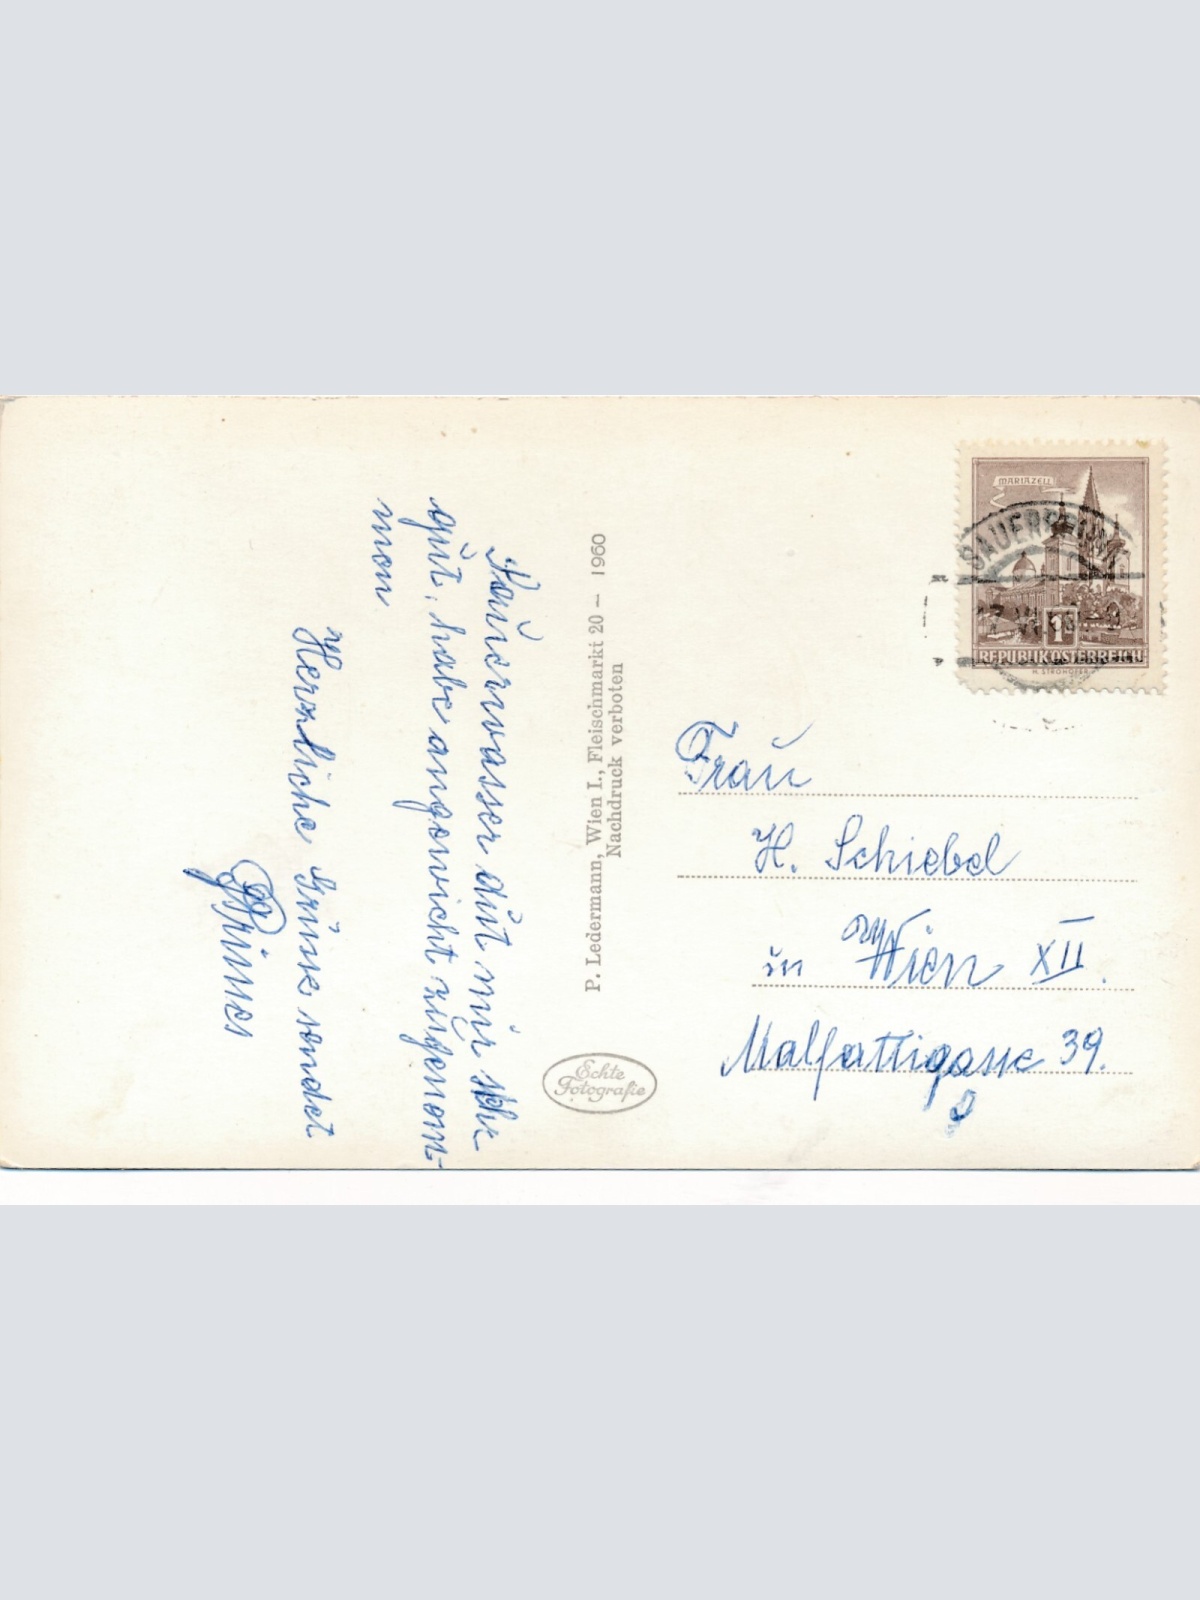 Sauerwasser dut mir sehr
gut, habe angewicht zugenom-
men
Herzliche Grüsse sendet
P. Ledermann, Wien I., Fleischmarkt 20 – 1960
Nachdruck verboten
Echte
Fotografie
MARIAZELL
SAUERBRUNN
1
REPUBLIK ÖSTERREICH
H. STROHOFER
Frau
H. Schiebel
in Wien XII.
Malfattigasse 39.